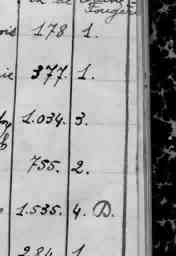 Fouger
178 1.
377. 1.
1.034. 3.
755. 2.
1.535. 4. D.
284 1